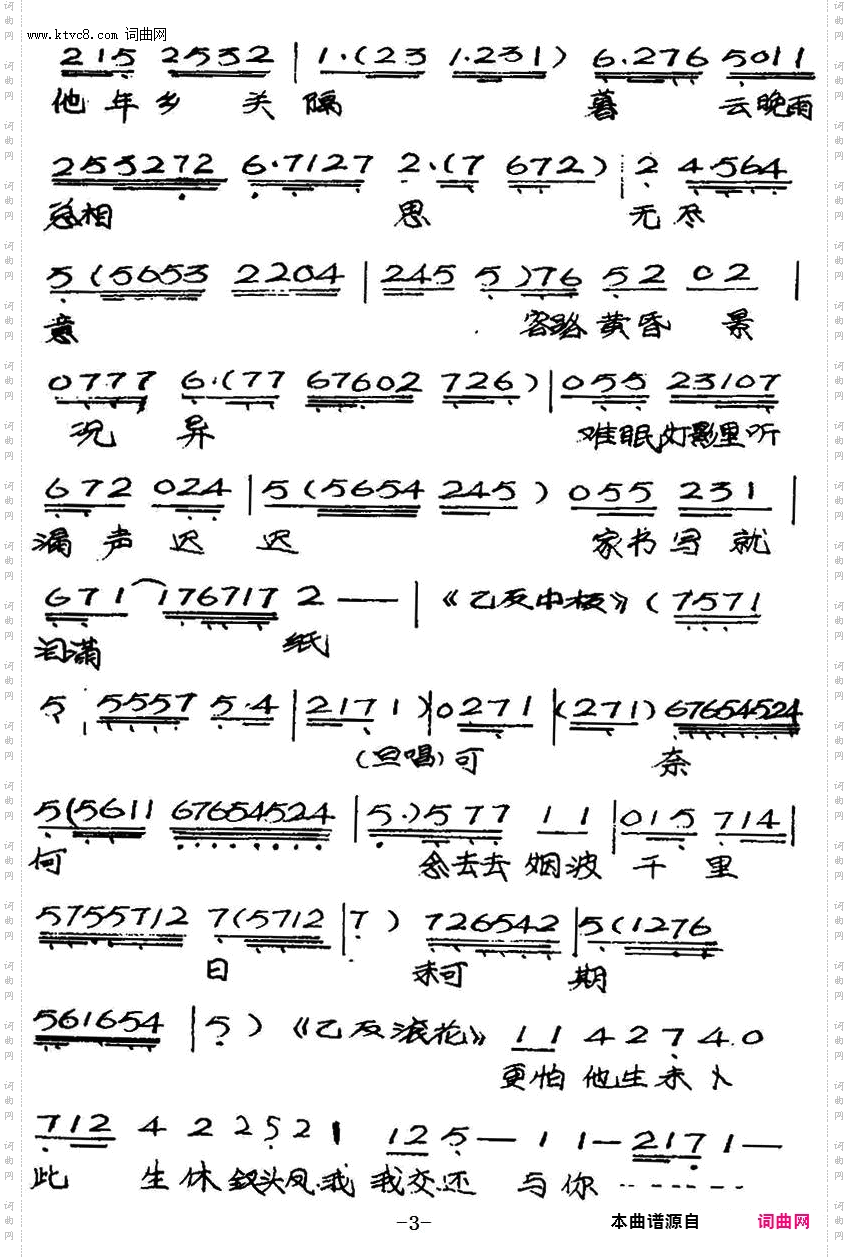 www.ktvc8.com 词曲网
215 2532 | 1·(23 1·231) 6·276 5011
他年乡关隔 暮 云晚雨
253272 6·7127 2·(7 672) 2 4·564
总相 思 无尽
5(5653 2204 | 245 5)76 52 02 |
意 客路黄昏 景
0777 6·(77 67602 726) | 055 23107
况 异 难眠灯影里听
672 024 | 5(5654 245) 055 231 |
漏声迟 迟 家书写就
671 176717 2 —— | 《乙反中板》(7571
泪满 纸
5 5557 5·4 | 2171) | 0271 | (271) 67654524
(旦唱)可 奈
5(5611 67654524 | 5·)577 11 | 015 714 |
何 念去去 烟波千里
5755712 7(5712 | 7) 726542 | 5(1276
日 未可 期
561654 | 5) 《乙反滚花》 11 4274·0
更怕他生未卜
712 4 2 2521 12 5— 11—2171—
此 生休钗头凤·我 我交还 与你------
-3- 本曲谱源自 词曲网